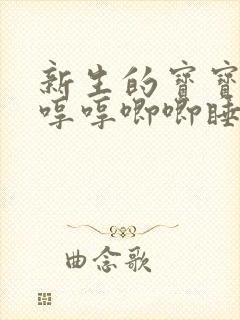 新生的寳寳
哼哼唧唧睡
曲念歌